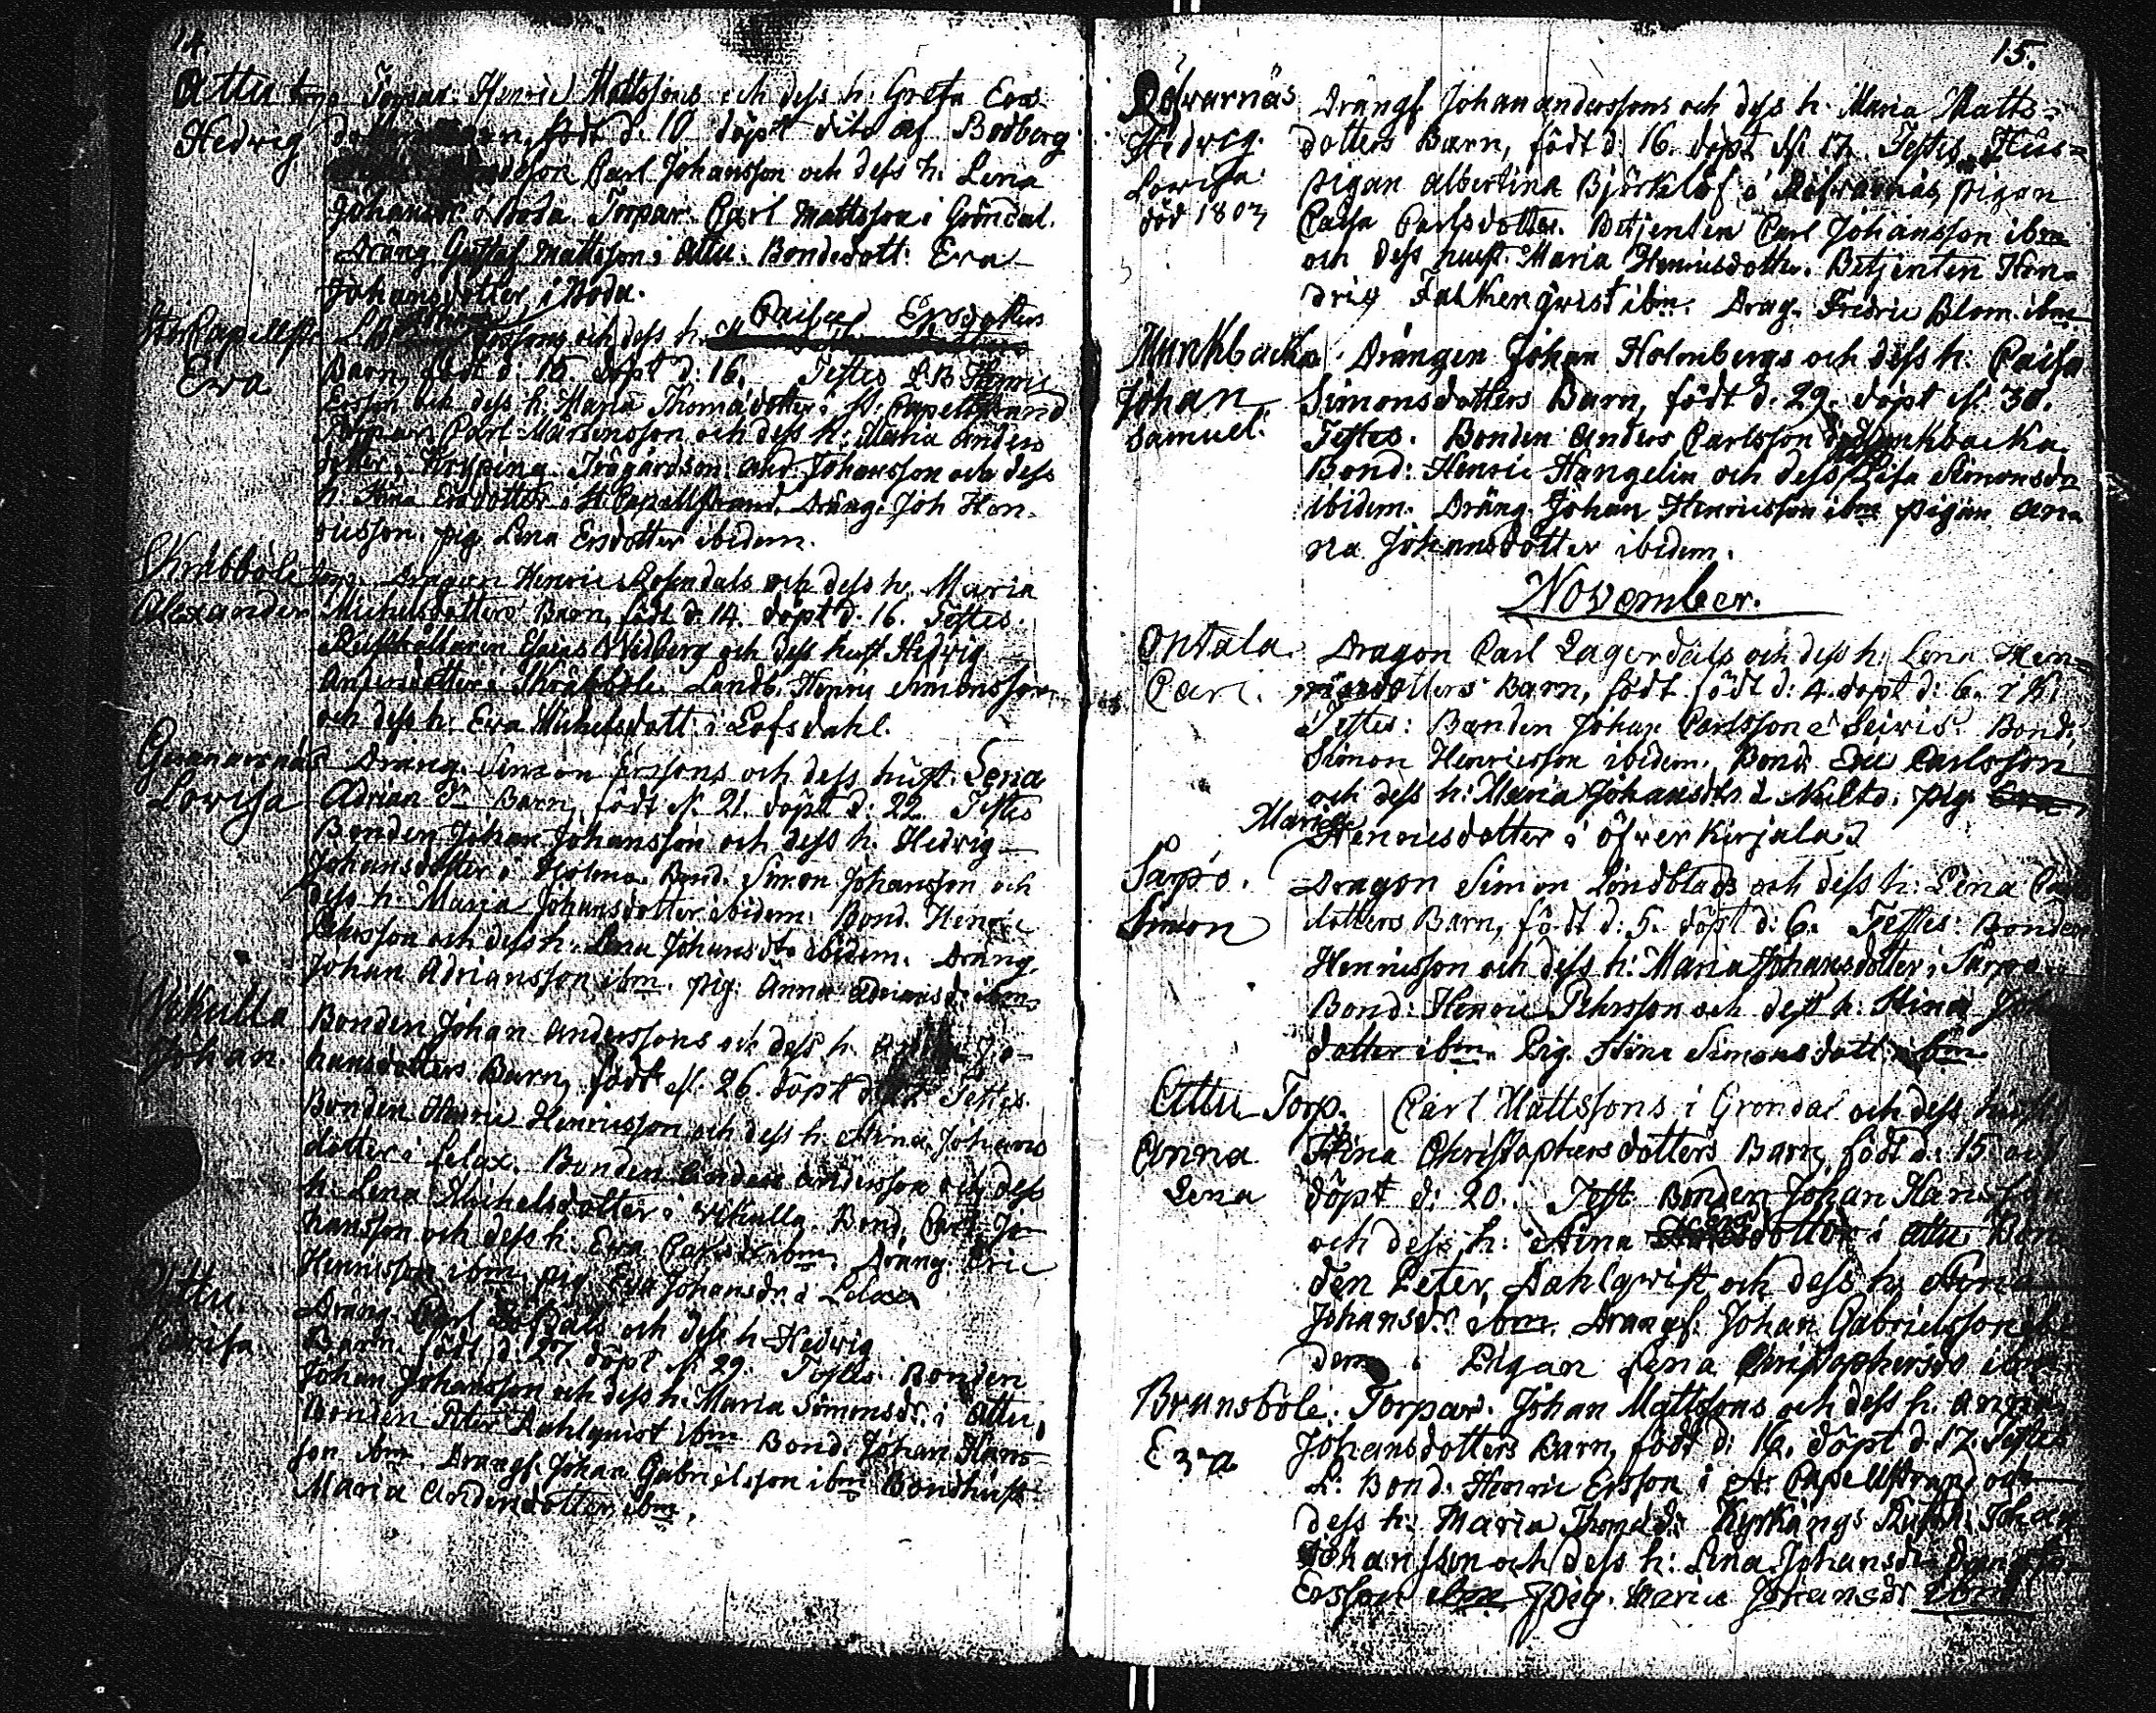 14.
Attu torp. Torpar. Henric Mattssons och dess h: Greta Ers-
Hedrig
Barn, född d. 10 döpt dito af Bodberg
Carl Johansson och dess h. Lena
Johansd: i Boda. Torpar. Carl Mattsson i Gröndal.
Dräng Gustaf Mattsson i Attu. Bondedott: Eva
Johansdotter i Boda.
St: Capellstr. L.B. och dess h. Caisa Ersdotters
Ewa
Barn, född d. 15 döpt d. 16. Testes L.B. Henric
Ersson och dess h: Maria Thomædotter i St. Capellstrand
Torpar. Carl Mårtensson och dess h: Maria Anders
dotter i Kryping. Trägårdsm: And: Johansson och dess
h: Stina Ersdotter i St Capellstrand. Dräng. Joh Hen-
ricsson. pig. Lena Ersdotter ibidem.
Skräbböle torp. Dragon Henric Rosendals och dess h: Maria
Alexander Michelsdotters Barn, född d: 14. döpt d. 16. Testes.
Rusthållaren Esaias Widberg och dess hust Hedvig
Andersdotter i Skräbböle. Landb. Henric Simonsson
och dess h: Eva Michelsdott: i Lofsdahl.
Gunnarnäs Dräng. Simon Erssons och dess hust. Lena
Lovisa Adrian dr Barn, född d. 21. döpt d: 22. Testes
Bonden Johan Johansson och dess h. Hedvig
Johansdotter i Bond. Simon Johansson och
dess h. Maria Johansdotter ibidem. Bond. Henric
Pehrsson och dess h. Lena Johansdr ibidem. Dräng.
Johan Adriansson ibm. pig. Anna Adriansdr ibm
Vikulla Bonden Johan Anderssons och dess h. Jo-
Johan. hansdotters Barn, född d. 26. döpt d. Testes.
Bonden Henric Henricsson och dess h. Stina Johans
dotter i Lelax. Bonden Anders Andersson och dess
h. Lena Michelsdotter i Vikulla. Bond. Carl Jo-
hansson och dess h. Eva Carlsdr ibm. Dräng. Eric
Henricsson ibm. pig. Eva Johansdr. i Lelax
Attu. Dräng. Carl och dess h Hedvig
Lovisa Barn. född d. 27. döpt d. 29. Testes. Bonden
Johan Johansson och dess h. Maria Simonsdr: i Attu,
Bonden Peter Dahlqvist ibm Bond. Johan Hans-
son ibm. Drängf. Johan Gabrielsson ibm Bondhust.
Maria Andersdotter ibm.
15.
Räfvarnäs Drängf. Johan Anderssons och dess h. Maria Matts-
Hedvig. dotters Barn, född d: 16. döpt d. 17. Testes Hus-
Lovisa pigan Albertina Björklöf i Räfvarnäs, pigan
död 1803 Caisa Carlsdotter. Betjenten Carl Johansson ibm
och dess hust. Maria Henricsdotter. Betjenten Hen-
dric Falkenqvist ibm. Drag. Fredric Blom ibm
Munkbacka. Drängen Johan Holmbergs och dess h: Caisa
Johan Simonsdotters Barn, född d. 29. döpt d. 30.
Samuel. Testes. Bonden Anders Carlsson Munkbacka.
Bond: Henric Hangelin och dess Lisa Simonsdr
ibidem. Dräng. Johan Henricsson ibm pigan An-
na Johansdotter ibidem.
November.
Ontala. Dragon Carl Lagerdals och dess h. Lena Hen-
Carl. ricsdotters Barn, född född d: 4. döpt d: 6. i K.
Testes: Bonden Johan Carlsson i Seivis. Bond.
Simon Henricsson ibidem. Bond. Eric Carlsson
och dess h: Maria Johansdtr i Nulto. pig. Eva
Maria Henricsdotter i Öfver Kirjala.
Särpö. Dragon Simon Lindblads och dess h: Lena
Simon dotters Barn, född d: 5. döpt d: 6. Testes: Bonden
Henricsson och dess h: Maria Johansdotter i Särpö
Bond: Henric Pehrsson och dess h: Stina Joh
dotter ibm. Pig. Stina Simonsdott: ibm
Attu Torp. Carl Mattssons i Gröndal och dess hust
Anna Stina Christophersdotters Barn, född d: 15 och
Lena döpt d: 20. Test. Bonden Johan Hansson
och dess h: Stina dotter i Attu Bon
den Peter Dahlqvist och dess h: Stina
Johansdr: ibm. Drängf: Johan Gabrielsson ibi
dem. Pigan Lena Christophersdr ibm
Brunsböle. Torpar. Johan Mattssons och dess h. Anna
Eva Johansdotters Barn, född d: 16. döpt d 17 Testes
L. Bond. Henric Ersson i St. Capellstrand och
dess h: Maria Thomædr: Johan
Johansson och dess h: Lena Johansdr
Ersson ibm pig. Maria Johansdr ibm